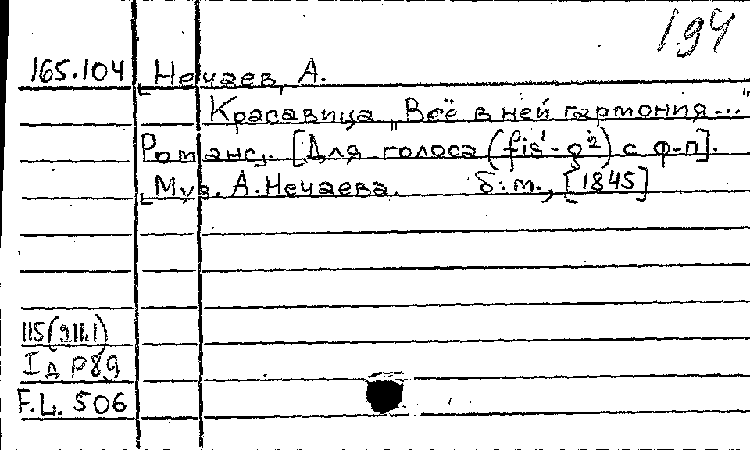 194
165.104 Нечаев, А.
Красавица „Всё в ней гармония..."
Романс,. [Для голоса (fis¹-g²) с ф-п].
Муз. А.Нечаева. б.м., [1845]
115(911.1)
Iд Р89
F.L. 506